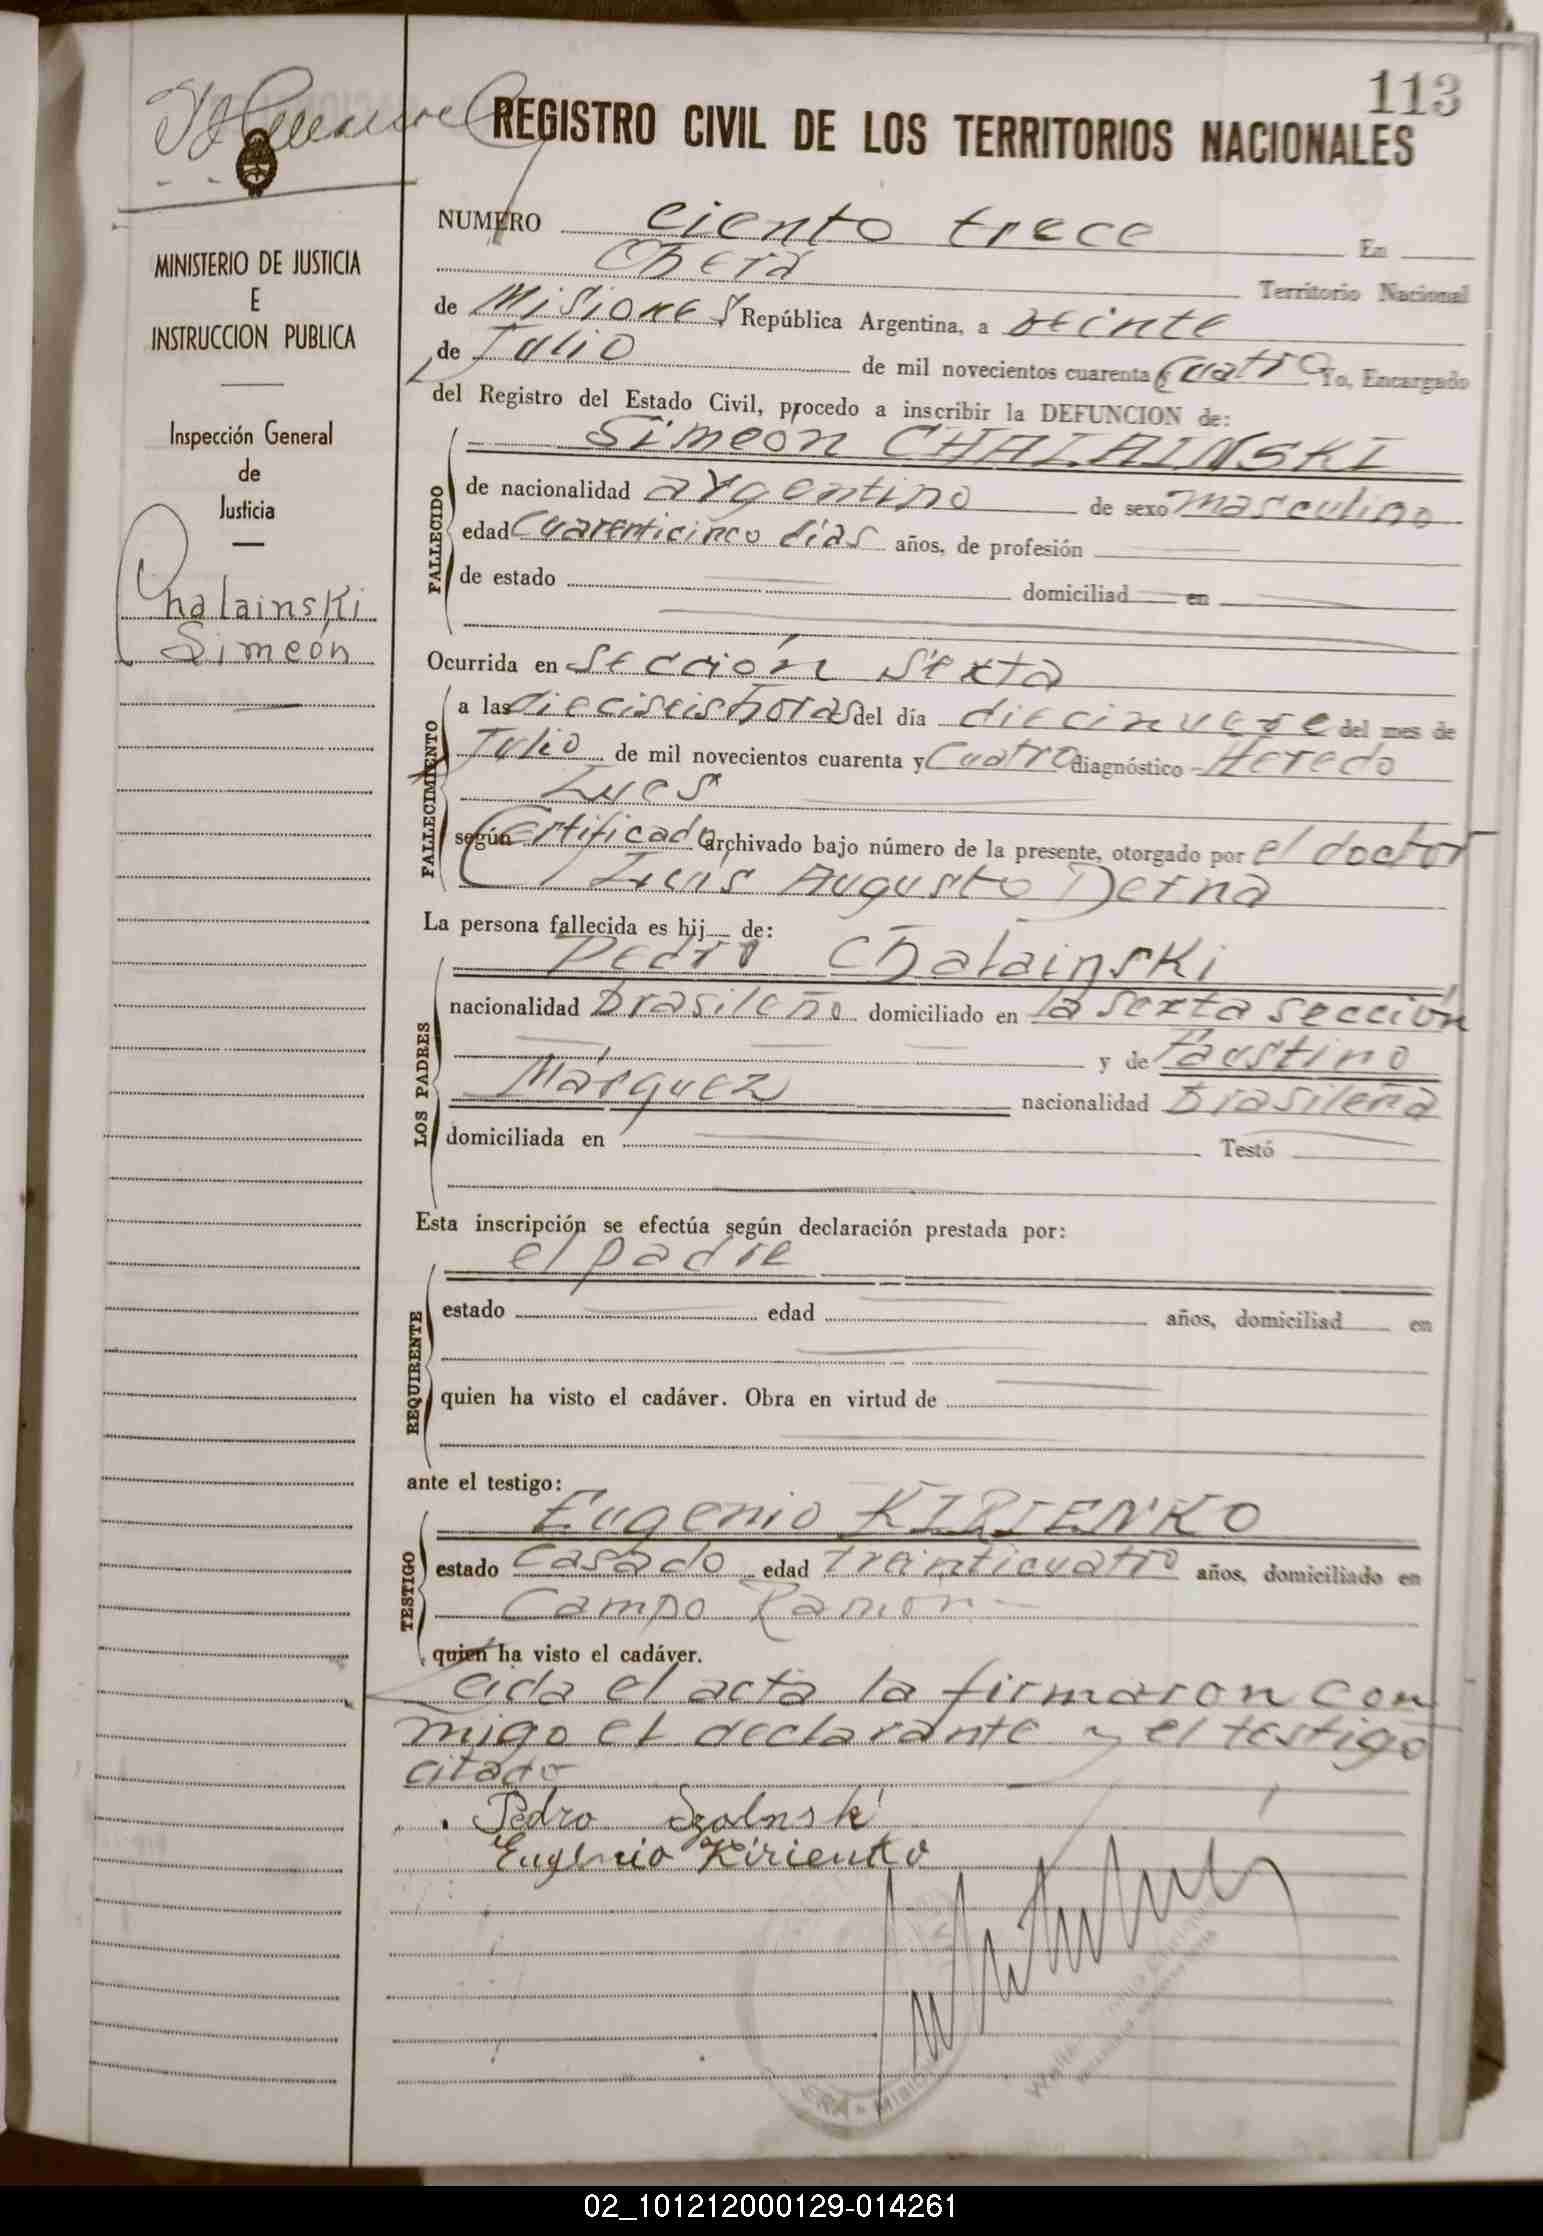 113
REGISTRO CIVIL DE LOS TERRITORIOS NACIONALES
MINISTERIO DE JUSTICIA
E
INSTRUCCION PUBLICA
Inspección General
de
Justicia
Chalainski
Simeón
NUMERO ciento trece En
Oberá Territorio Nacional
de Misiones República Argentina, a veinte
de Julio de mil novecientos cuarenta y cuatro Yo, Encargado
del Registro del Estado Civil, procedo a inscribir la DEFUNCION de:
FALLECIDO
Simeón CHALAINSKI
de nacionalidad argentino de sexo masculino
edad cuarenticinco días años, de profesión
de estado domiciliad en
Ocurrida en Sección Sexta
FALLECIMIENTO
a las dieciseis horas del día diecinueve del mes de
Julio de mil novecientos cuarenta y cuatro diagnóstico Heredo
Lues
según Certificado archivado bajo número de la presente, otorgado por el doctor
Luis Augusto Derna
La persona fallecida es hij de:
LOS PADRES
Pedro Chalainski
nacionalidad brasileño domiciliado en la sexta sección
y de Faustino
Márquez nacionalidad brasileña
domiciliada en Testó
Esta inscripción se efectúa según declaración prestada por:
REQUIRENTE
el padre
estado edad años, domiciliad en
quien ha visto el cadáver. Obra en virtud de
ante el testigo:
TESTIGO
Eugenio KIRIENKO
estado casado edad treinticuatro años, domiciliado en
Campo Ramón
quien ha visto el cadáver.
Leida el acta la firmaron con
migo el declarante y el testigo
citado
Pedro Szalnski
Eugenio Kirienko
02_101212000129-014261